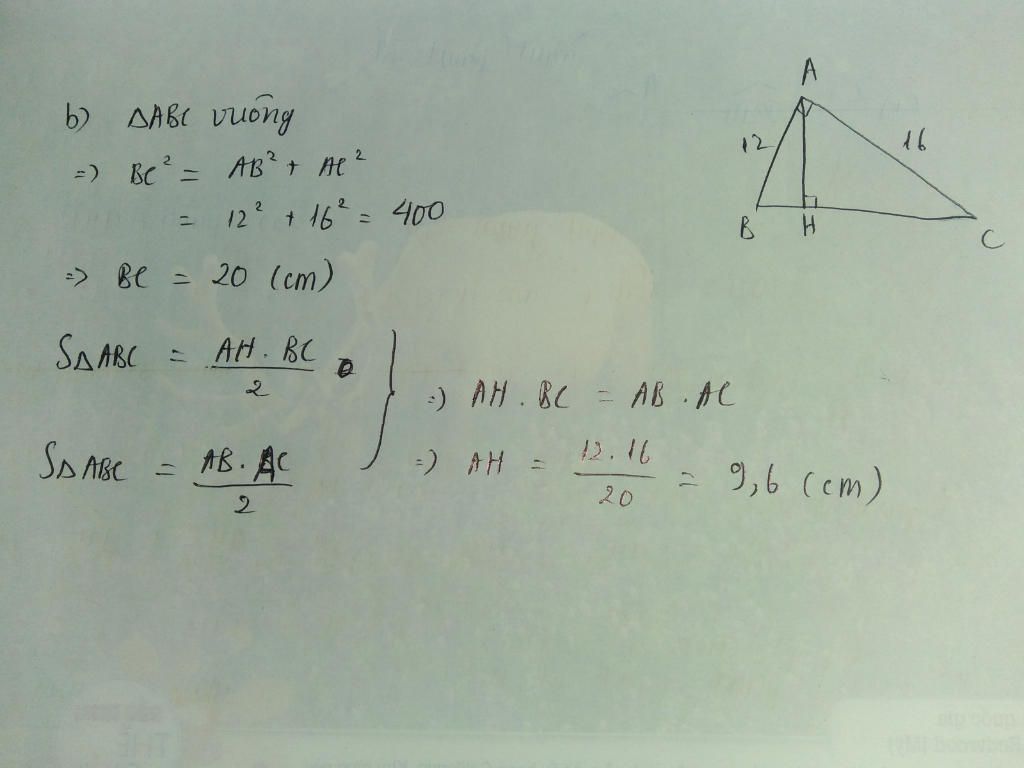 b) ΔABC vuông
=> BC² = AB² + AC²
= 12² + 16² = 400
=> BC = 20 (cm)
SΔABC = AH . BC / 2
SΔABC = AB . AC / 2
=> AH . BC = AB . AC
=> AH = 12 . 16 / 20 = 9,6 (cm)
A
12
16
B
H
C
quốc gia
Redwood (Mỹ)
THẺ